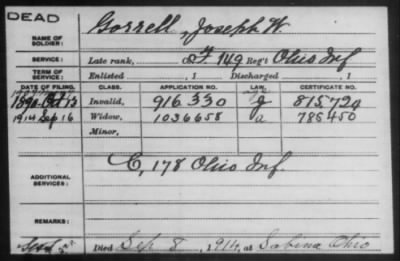 DEAD
NAME OF SOLDIER: Gorrell, Joseph W.
SERVICE: Late rank, Co F, 149 Reg't Ohio Inf
TERM OF SERVICE: Enlisted , 1 Discharged , 1
DATE OF FILING. CLASS. APPLICATION NO. LAW. CERTIFICATE NO.
1890 Oct 13 Invalid, 916 330 g 815724
1914 Sep 16 Widow, 1036658 a 786450
Minor,
ADDITIONAL SERVICES: C, 178 Ohio Inf.
REMARKS:
Died Sep 8, 1914, at Sabina Ohio